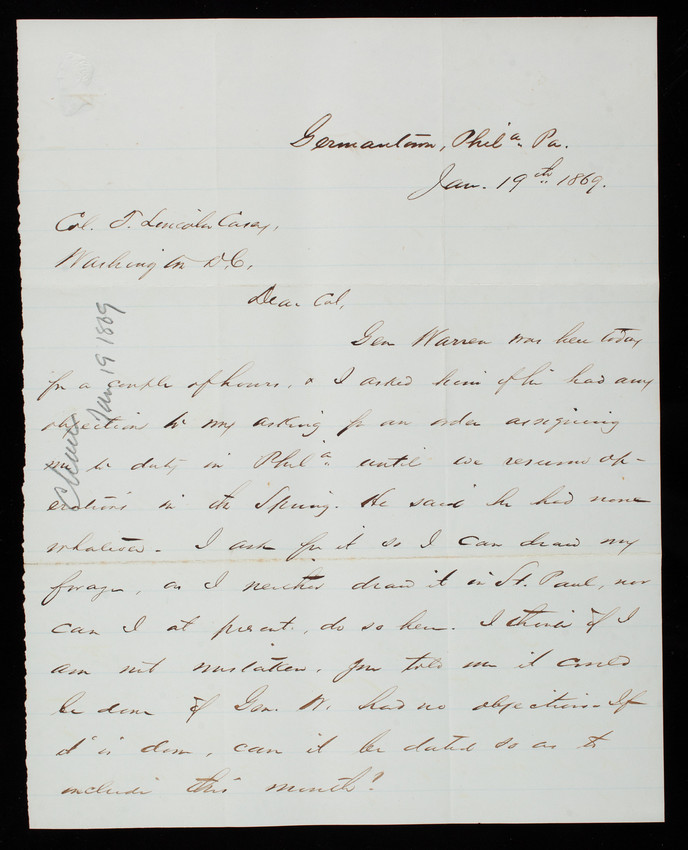 Germantown, Phila. Pa.
Jan. 19th. 1869.
Col. T. Lincoln Casey,
Washington D.C,
Dear Col,
Gen Warren was here today
for a couple of hours, & I asked him if he had any
objection to my asking for an order assigning
me to duty in Phila. until we resume op-
erations in the Spring. He said he had none
whatever. I ask for it so I can draw my
forage, as I neither draw it in St. Paul, nor
can I at present, do so here. I think if I
am not mistaken, you told me it could
be done if Gen. W. had no objections. If
it is done, can it be dated so as to
include this month?
Jan 19 1869